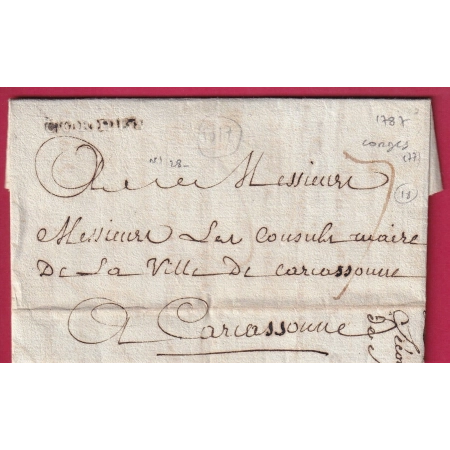 1787
conges
(77)
N° 28
1317
13
A Messieurs
Messieurs Les Consuls maire
De La Ville De Carcassonne
A Carcassonne